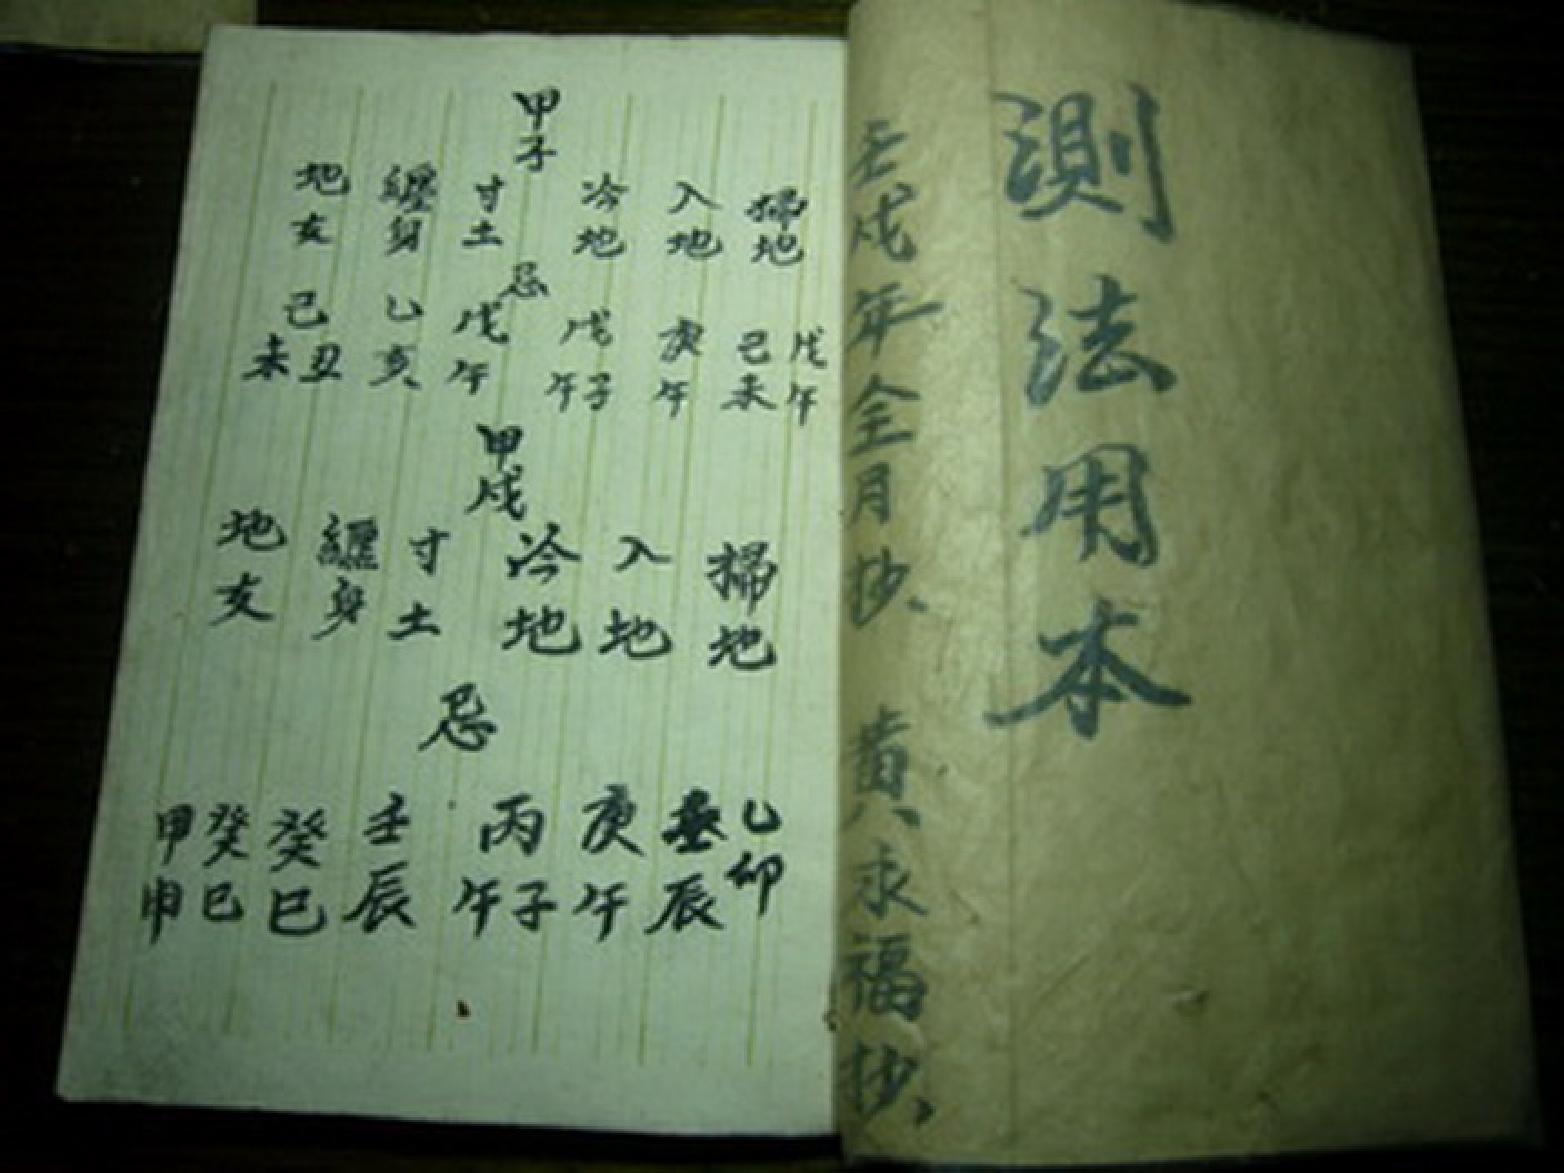 測法用本
壬戌年全月抄 黄永福抄
甲子
掃地 入地 冷地 寸土 纏身 地支
忌
戊午 己未 庚午 戊子午 戊午 乙亥 己丑未
甲戌
掃地 入地 冷地 寸土 纏身 地支
忌
乙卯 辰 庚午 丙子午 壬辰 癸巳 癸巳 甲申